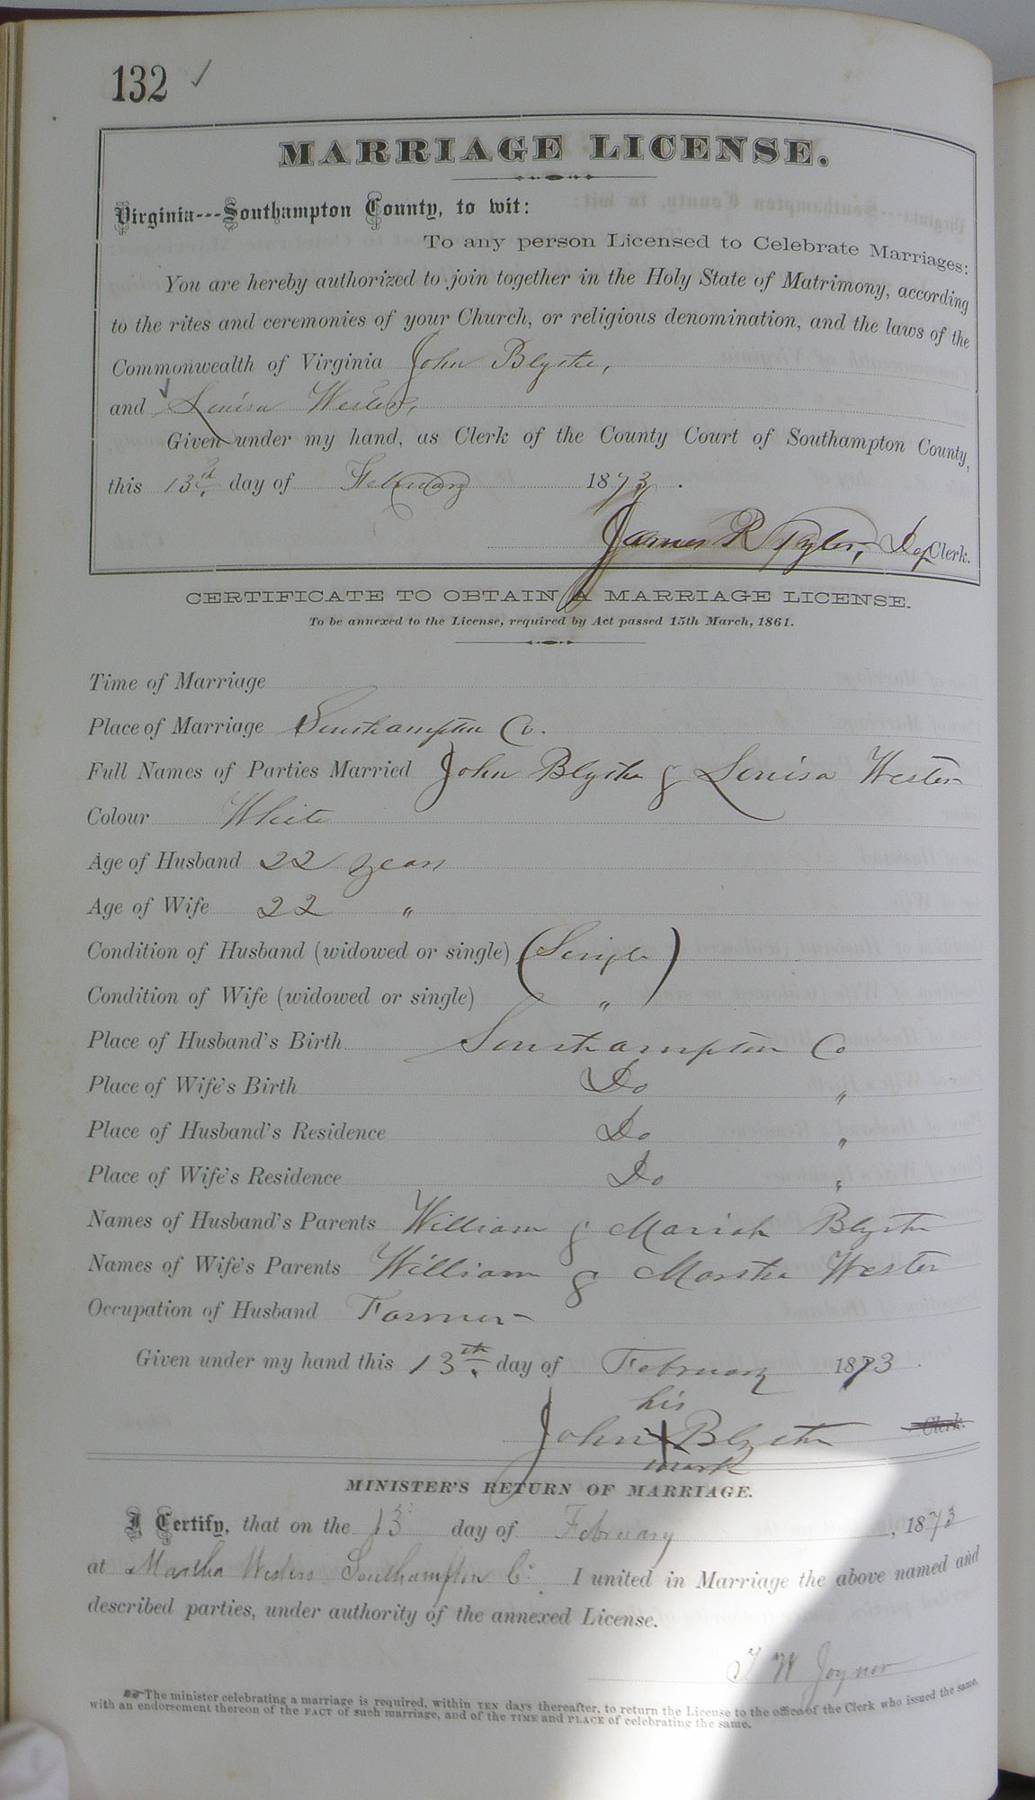 132 ✓
MARRIAGE LICENSE.
Virginia---Southampton County, to wit:
To any person Licensed to Celebrate Marriages:
You are hereby authorized to join together in the Holy State of Matrimony, according
to the rites and ceremonies of your Church, or religious denomination, and the laws of the
Commonwealth of Virginia John Blythe,
and Louisa Wester,
Given under my hand, as Clerk of the County Court of Southampton County,
this 13th day of February 1873.
James R Taylor, Dep Clerk.
CERTIFICATE TO OBTAIN A MARRIAGE LICENSE.
To be annexed to the License, required by Act passed 15th March, 1861.
Time of Marriage
Place of Marriage Southampton Co.
Full Names of Parties Married John Blythe & Louisa Wester
Colour White
Age of Husband 22 years
Age of Wife 22 "
Condition of Husband (widowed or single) (Single)
Condition of Wife (widowed or single) "
Place of Husband's Birth Southampton Co
Place of Wife's Birth Do "
Place of Husband's Residence Do "
Place of Wife's Residence Do "
Names of Husband's Parents William & Mariah Blythe
Names of Wife's Parents William & Martha Wester
Occupation of Husband Farmer
Given under my hand this 13th day of February 1873.
his
John X Blythe Clerk.
mark
MINISTER'S RETURN OF MARRIAGE.
I Certify, that on the 13 day of February, 1873
at Martha Westers Southampton Co. I united in Marriage the above named and
described parties, under authority of the annexed License.
W Joyner
The minister celebrating a marriage is required, within TEN days thereafter, to return the License to the office of the Clerk who issued the same,
with an endorsement thereon of the FACT of such marriage, and of the TIME and PLACE of celebrating the same.